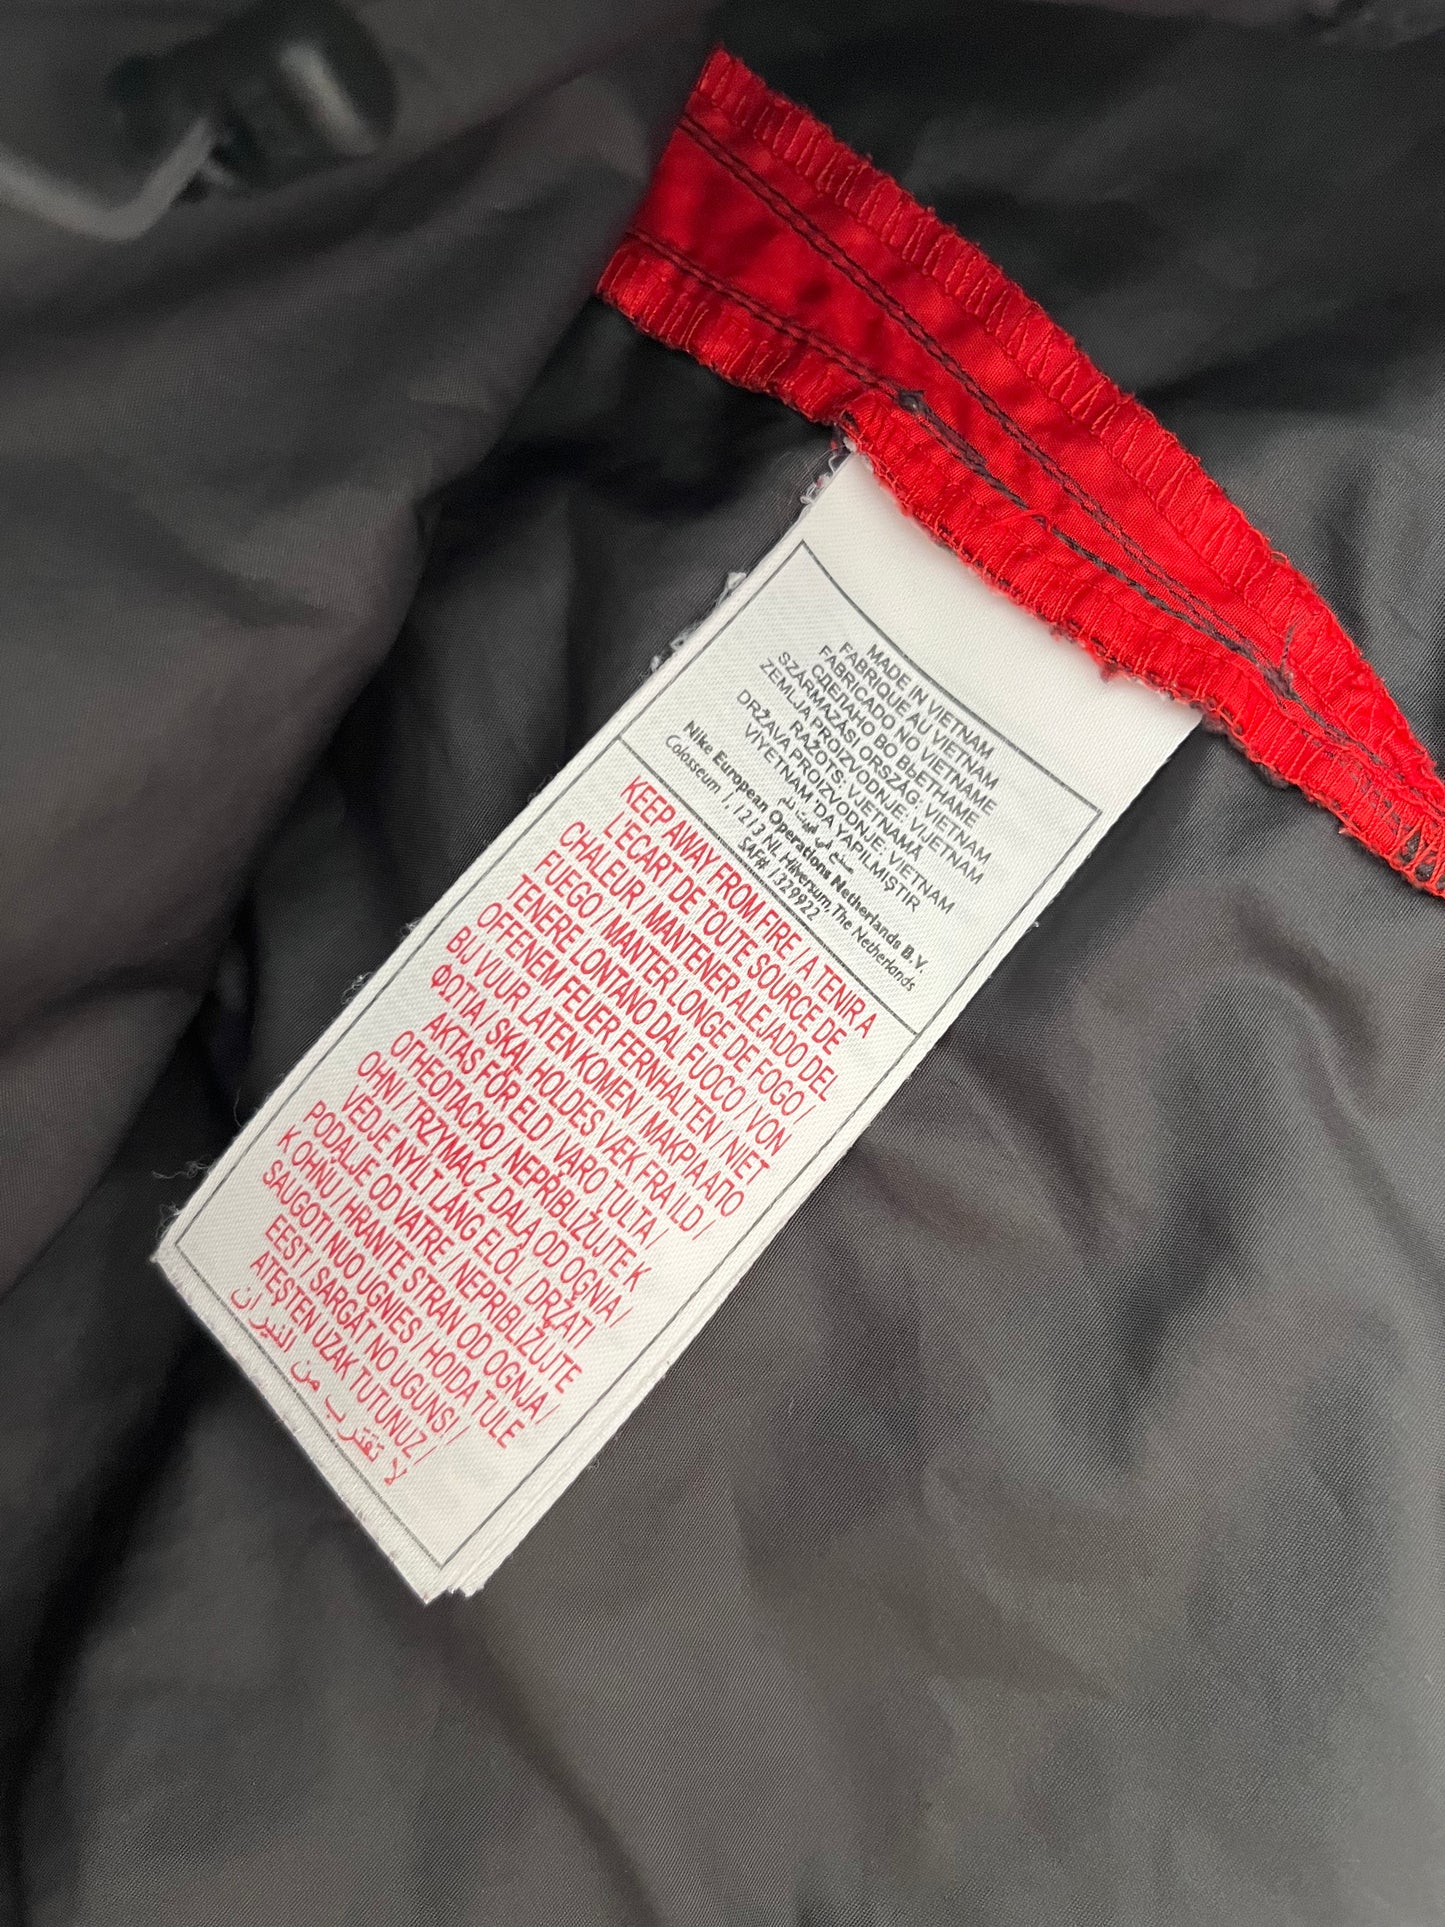 MADE IN VIETNAM
FABRIQUE AU VIETNAM
FABRICADO NO VIETNAME
СДЕЛАНО ВО ВЬЕТНАМЕ
SZÁRMAZÁSI ORSZÁG: VIETNAM
ZEMLJA PROIZVODNJE: VIJETNAM
RAŽOTS: VJETNAMĀ
DRŽAVA PROIZVODNJE: VIETNAM
VİYETNAM 'DA YAPILMIŞTIR
صنع في فيتنام
Nike European Operations Netherlands B.V.
Colosseum 1, 1213 NL Hilversum, The Netherlands
SAF# 1329922
KEEP AWAY FROM FIRE / A TENIR A
L'ECART DE TOUTE SOURCE DE
CHALEUR / MANTENER ALEJADO DEL
FUEGO / MANTER LONGE DE FOGO /
TENERE LONTANO DAL FUOCO / VON
OFFENEM FEUER FERNHALTEN / NIET
BIJ VUUR LATEN KOMEN / ΜΑΚΡΙΑ ΑΠΟ
ΦΩΤΙΑ / SKAL HOLDES VÆK FRA ILD /
AKTAS FÖR ELD / VARO TULTA /
ОГНЕОПАСНО / NEPŘIBLIŽUJTE K
OHNI / TRZYMAĆ Z DALĄ OD OGNIA /
VEDJE NYÍLT LÁNG ELŐL / DRŽATI
PODALJE OD VATRE / NEPRIBLIŽUJTE
K OHŇU / HRANITE STRAN OD OGNJA /
SAUGOTI NUO UGNIES / HOIDA TULE
EEST / SARGĀT NO UGUNS! /
ATEŞTEN UZAK TUTUNUZ /
لا تقترب من النيران